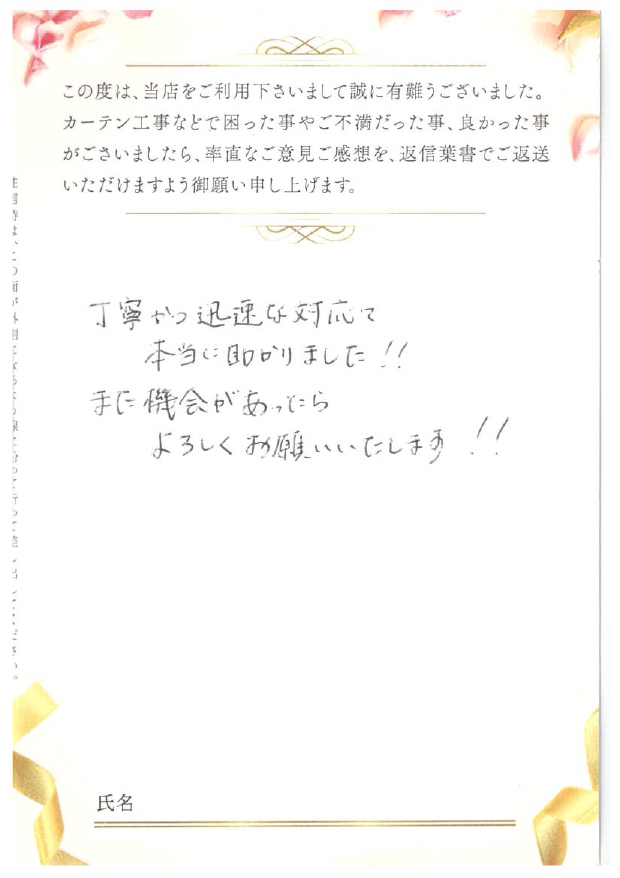 この度は、当店をご利用下さいまして誠に有難うございました。
カーテン工事などで困った事やご不満だった事、良かった事
がございましたら、率直なご意見ご感想を、返信葉書でご返送
いただけますよう御願い申し上げます。
丁寧かつ迅速な対応で
本当に助かりました!!
また機会があったら
よろしくお願いいたします!!
氏名